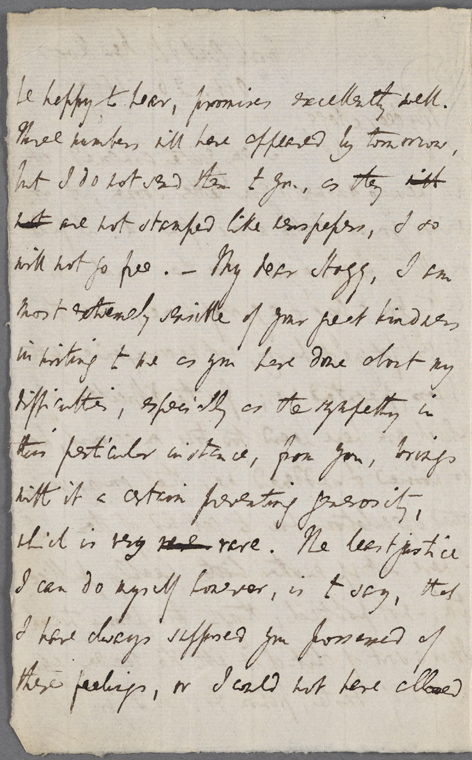 be happy to hear, promises excellently well.
Three numbers will have appeared by tomorrow,
but I do not send them to you, as they will
not are not stamped like newspapers, & so
will not go free. – My dear Hogg, I am
most extremely sensible of your great kindness
in writing to me as you have done about my
difficulties, especially as the sympathy in
this particular instance, from you, brings
with it a certain generosity,
which is very rare. The least justice
I can do myself however, is to say, that
I have always supposed you possessed of
these feelings, or I could not have